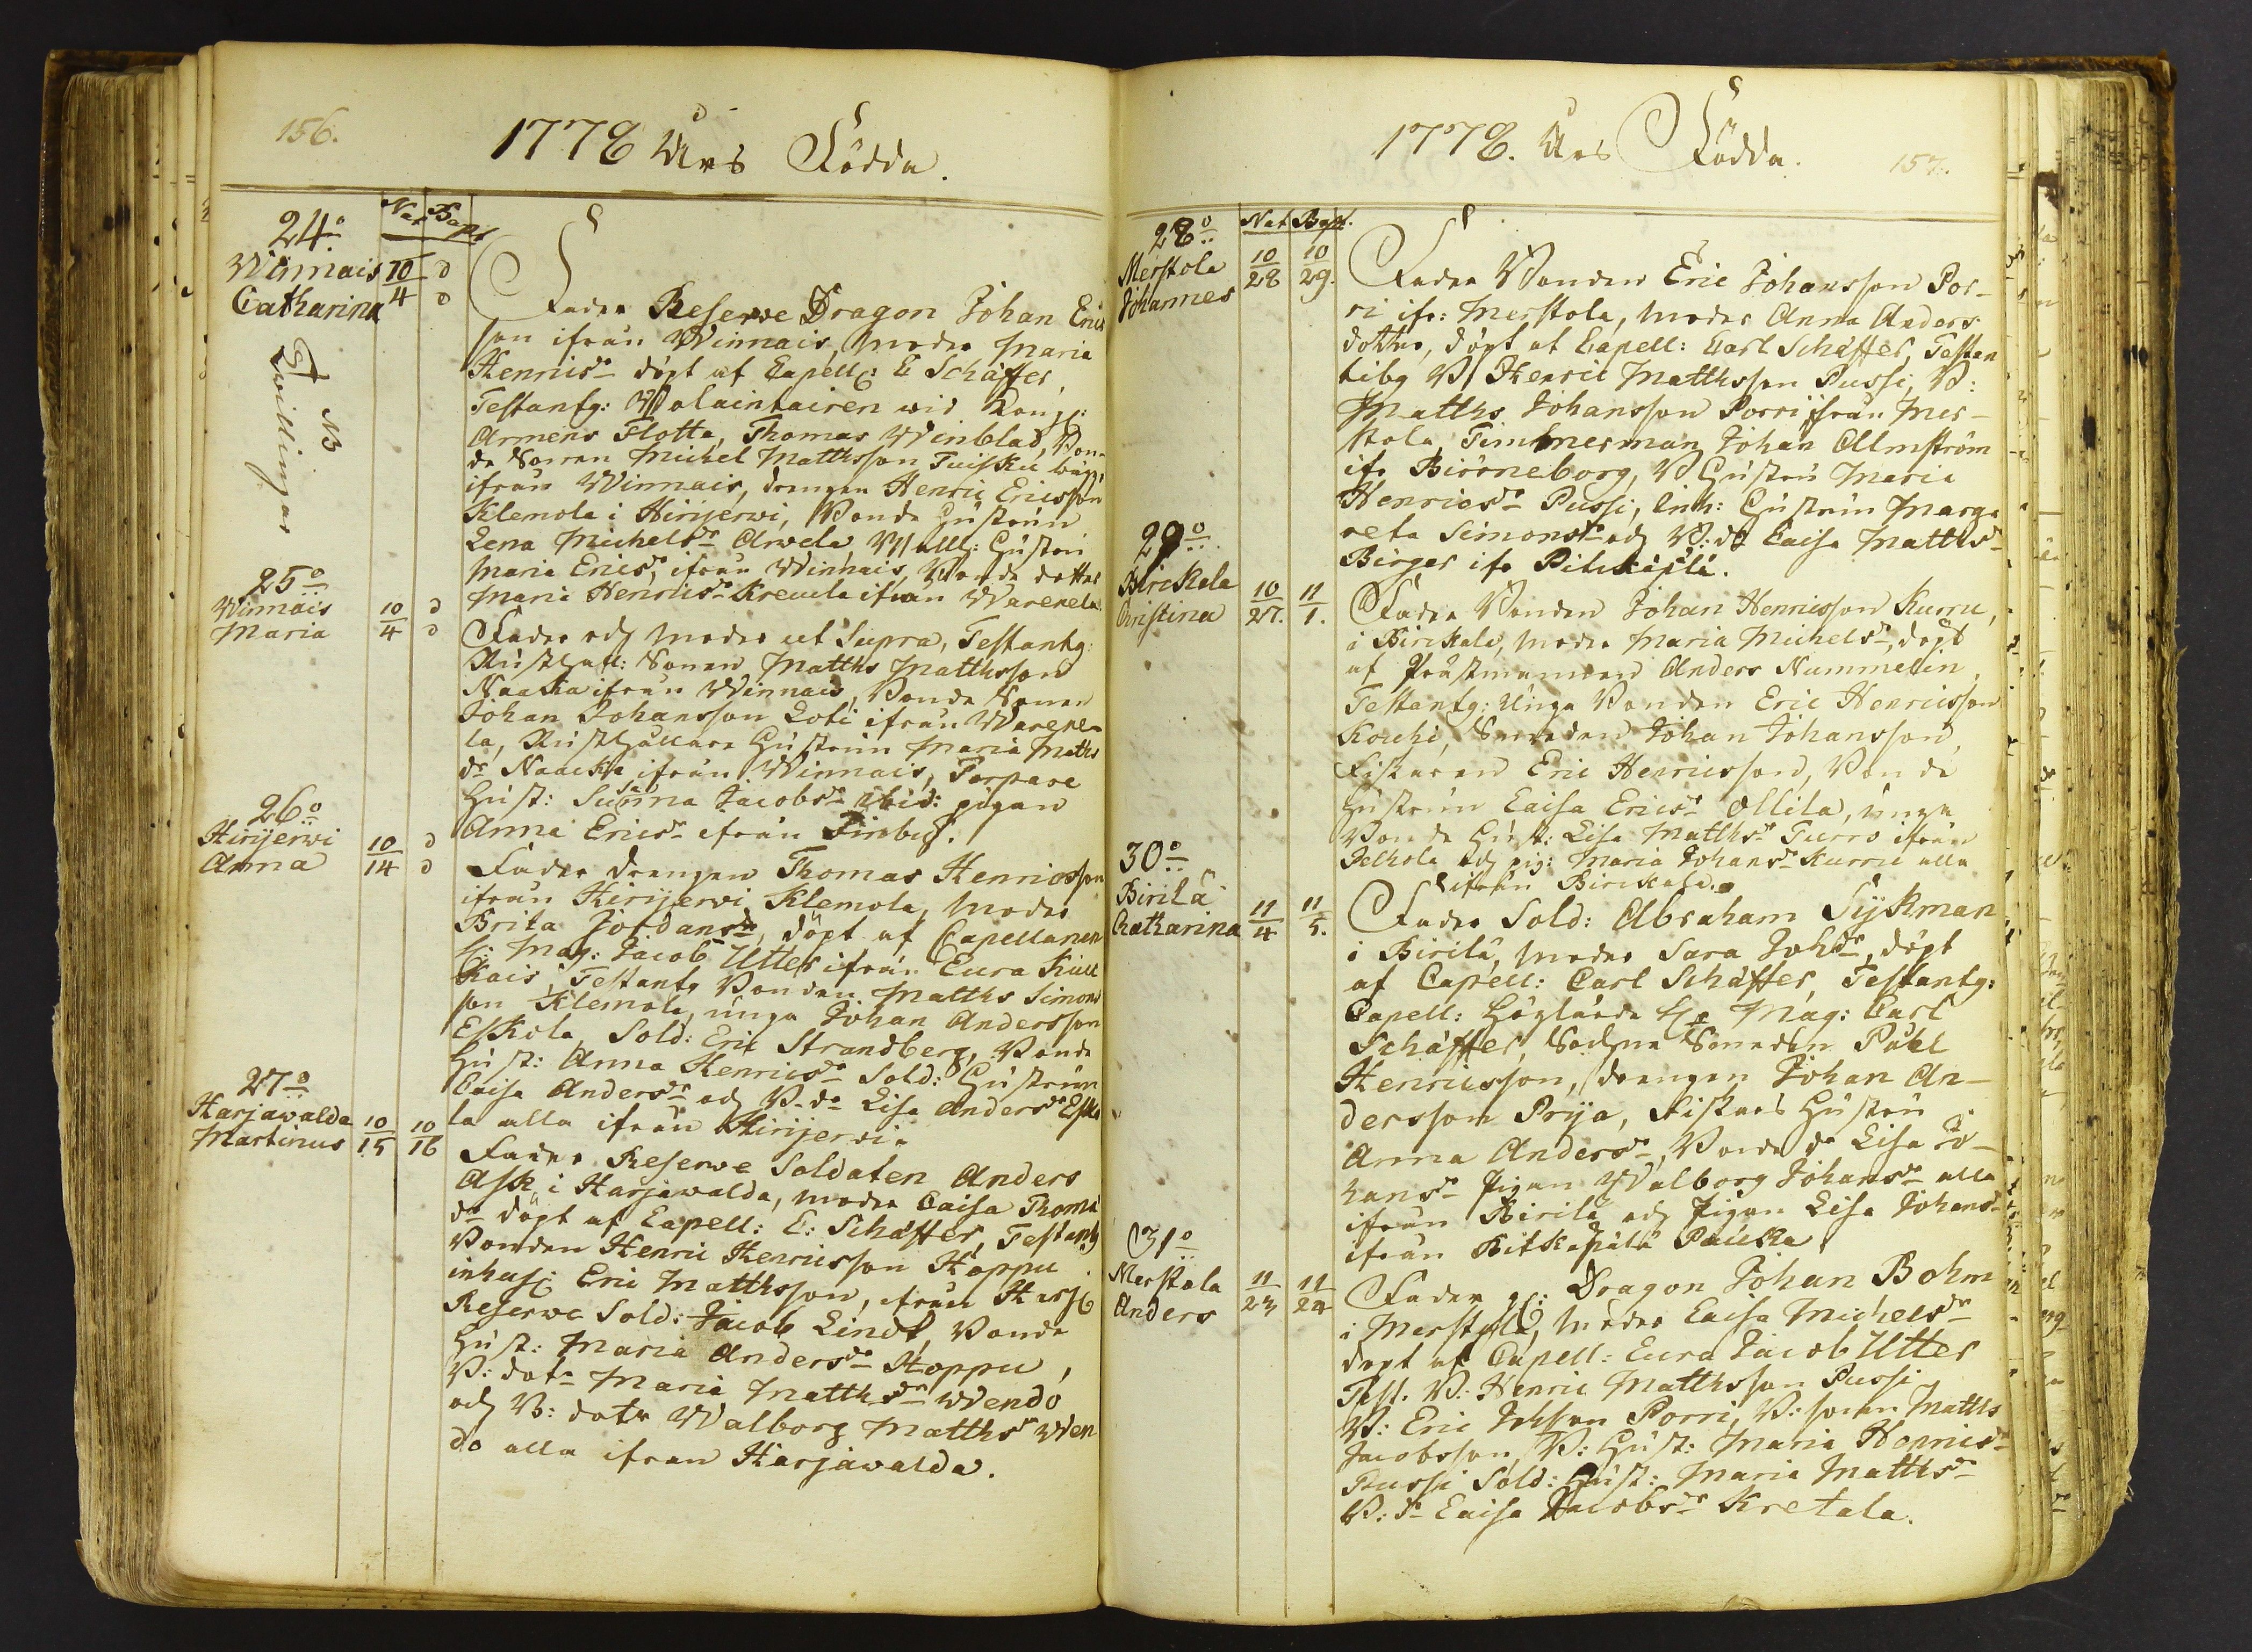 156.
1778 Års Födda.
Nat Bapt
24o
Winnais 10/4 d
Catharina d
NB
Twillingar
Fader Reserve Dragon Johan Erics
son ifrån Winnais, moder Maria
Henricsdr döpt af Capell: C Schäffer,
Testantg: Wolaintairen wid Kongl:
Armens Flotta, Thomas Winblad, Bon-
de Sonen Michel Matthsson Tuisku bägge
ifrån Winnais, drengen Henric Ericsson
Klemola i Hirijerwi, Bonde Hustrun
Lena Michelsdr Arwela, Wall: Hustru
Maria Ericsdr ifrån Winnais, Bonde dotter
Maria Henricsdr Kreula ifrån Warekela.
25o
Winnais 10/4 d
Maria d
Fader och Moder ut Supra, Testantg:
Rusthåll: Sonen Matths Matthsson
Naaka ifrån Winnais, Bonde Sonen
Johan Johansson Loti ifrån Wareke-
la, Rusthållare Hustrun Maria Matths
dr Naacka ifrån Winnais, Torpare
Hust: Susanna Jacobsdr ibid: pigan
Anna Ericsdr ifrån Finby.
26o
Hirijerwi 10/14 d
Anna d
Fader drengen Thomas Henricsson
ifrån Hirijerwi Klemola, Moder
Brita Jordansdr, döpt af Capellanen
H: Mag: Jacob Utter ifrån Eura Kiuu
kais, Testantg Bonden Matths Simons
son Klemola, unga Johan Andersson
Eskola, Sold: Eric Strandberg, Bonde
Hust: Anna Henricsdr Sold: Hustrun
Caisa Andersdr och B. dr Lisa Andersdr Esko
la alla ifrån Hirijerwi.
27o
Harjawalda 10/15 10/16
Martinus
Fader Reserve Soldaten Anders
Ask i Harjawalda, moder Caisa Thoma
dr döpt af Capell: C: Schäffer, Testantg
Bonden Henric Henricsson Hoppu
inhus: Eric Matthsson, ifrån Harj:
Reserve Sold: Jacob Lindt, Bonde
Hust: Maria Andersdr Hoppu,
B: dotr Maria Matthsdr Wendo
och B: dotr Walborg Matthsdr Wen
do alla ifrån Harjawalda.
1778. Års Födda.
157.
Nat Bapt.
28o
Merstola 10/28 10/29.
Johannes
Fader Bonden Eric Johansson Por-
ri ifr: Merstola, moder Anna Anders
dotter, döpt af Capell: Carl Schäffer, Testan
tibg B: Henric Matthsson Pussi, B:
Matths Johansson Porri ifrån Mer-
stola, Timmerman Johan Almström
ifr Biörneborg, B Hustru Maria
Henricsdr Pussi, Enk: Hustrun Marga
reta Simonsdr och B: dr Caisa Matthsdr
Birger ifr
29o
Birckala 10/27. 11/1.
Christina
Fader Bonden Johan Henricsson Kurru,
i Birckala, moder Maria Michelsdr, döpt
af Prästmannen Anders Nummelin,
Testantg: Unga Bonden Eric Henricsson
Kouhi, Johan Johansson,
Fiskaren Eric Henricsson, Bonde
Hustrun Caisa Ericsdr Ollila, unga
Bonde Hust: Lisa Matthsdr Turro ifrån
och pig: Maria Johansdr Kurru alla
ifrån Birckala.
30o
Birilä 11/4 11/5.
Catharina
Fader Sold: Abraham Sijkman
i Birilä, moder Sara Johsdr, döpt
af Capell: Carl Schäffer, Testantg:
Capell: Höglärde Hr Mag: Carl
Schäffer, Påhl
Henricsson, drengen Johan An-
dersson Prija, Fiskars Hustru
Anna Andersdr, Bonde dr Lisa Jo-
hansdr Pigan Walborg Johansdr alla
ifrån Birilä och Pigan Lisa Johansdr
ifrån Pitkäpälä
31o
Merstola 11/23 11/24
Anders
Fader Dragon Johan Bohm
i Merstola, Moder Caisa Michelsdr
döpt af Capell: Eura Jacob Utter
Test. B: Henric Matthsson Pussi
B: Eric Johsson Porri, B: sonen Matths
Jacobsson, B: Hust: Maria Henricsdr
Pussi Sold: Hust: Maria Matthsdr
B: dr Caisa Jacobsdr Kretala.